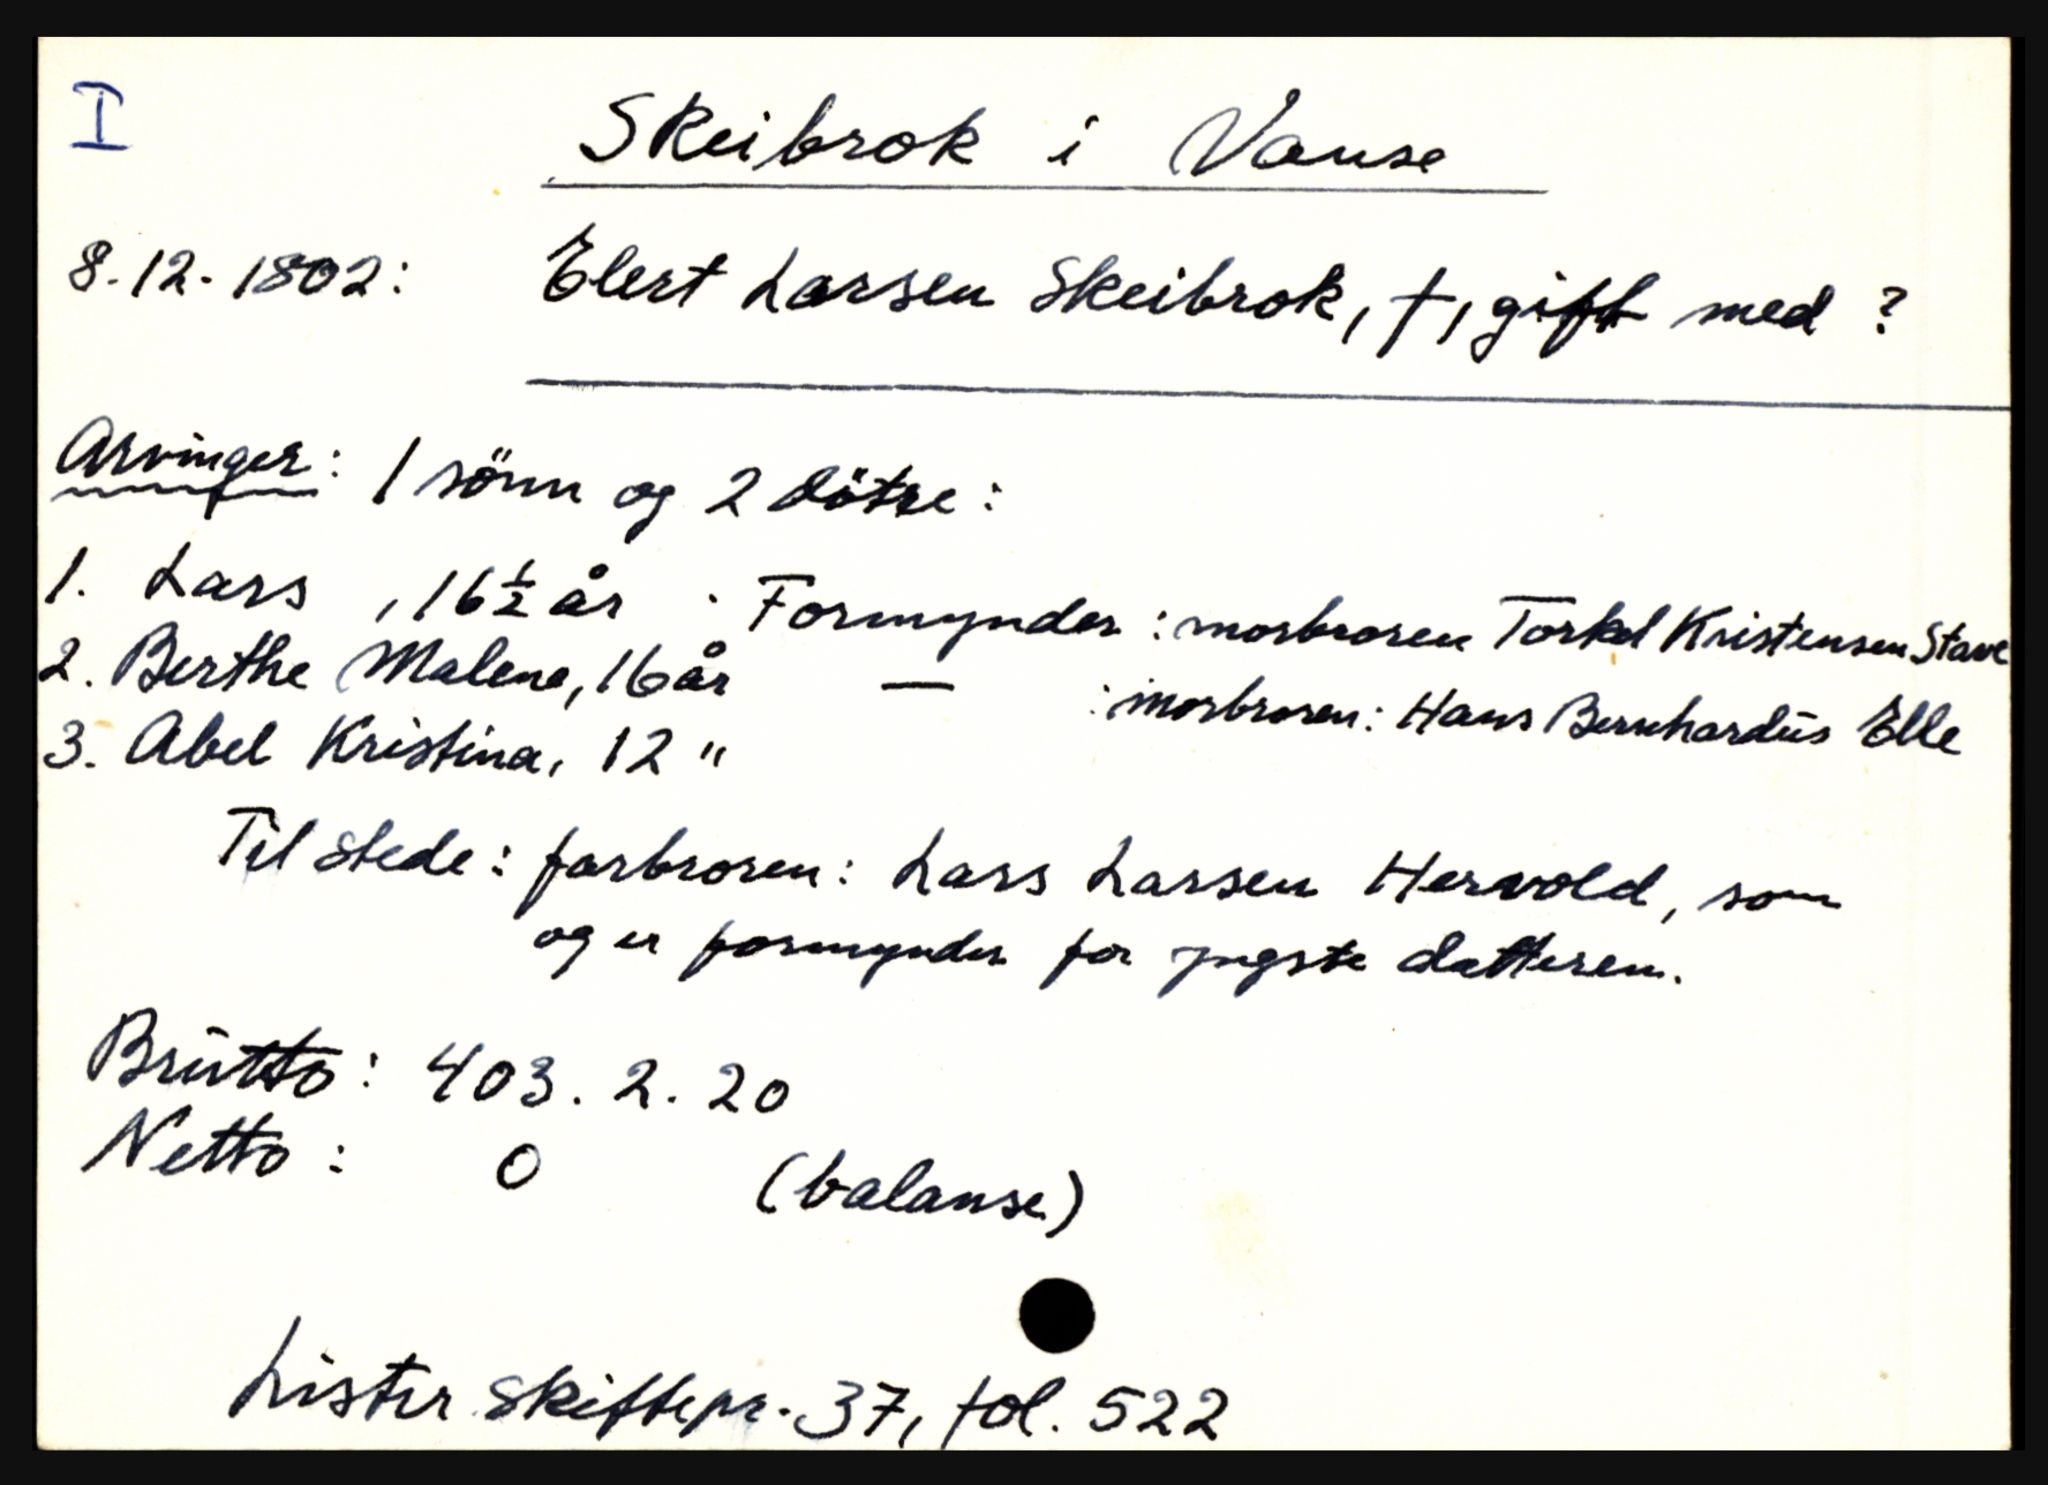 I
Skeibrok i Vanse
8.12.1802: Elert Larsen Skeibrok, †, gift med ?
Arvinger: 1 sönn og 2 dötre:
1. Lars , 16 ½ år : Formynder : morbroren Torkel Kristensen Stave
2. Berthe Malene, 16 år — : morbroren: Hans Bernhardus Elle
3. Abel Kristina, 12 "
Til stede: farbroren: Lars Larsen Hervold, som
og er formynder for yngste datteren.
Brutto: 403. 2. 20
Netto: 0 (balanse)
Lister skiftepr. 37, fol. 522